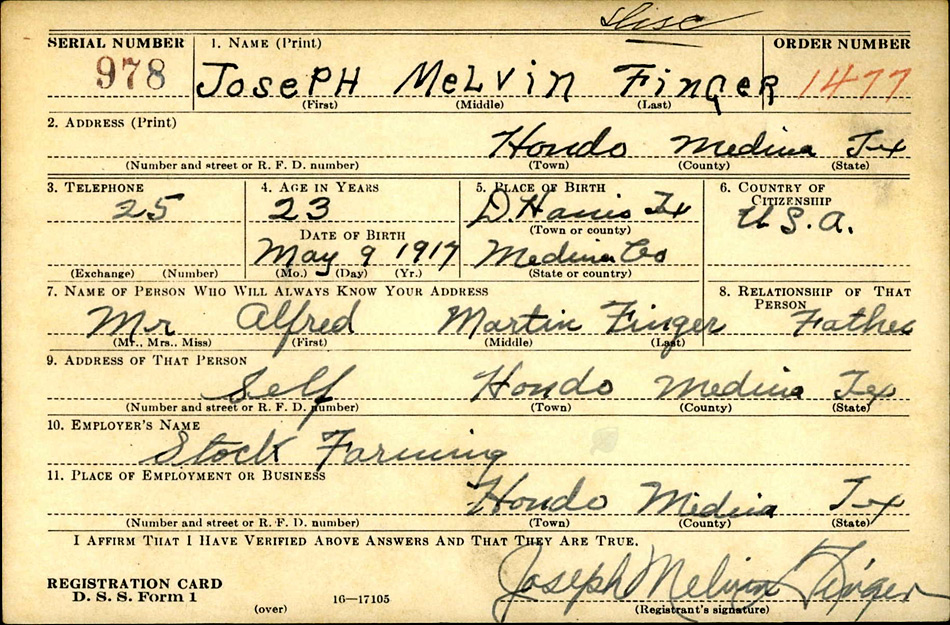 Disc
SERIAL NUMBER 1. NAME (Print) ORDER NUMBER
978 JosePH MeLvin Finger 1477
(First) (Middle) (Last)
2. ADDRESS (Print)
Hondo Medina Tex
(Number and street or R. F. D. number) (Town) (County) (State)
3. TELEPHONE 4. AGE IN YEARS 5. PLACE OF BIRTH 6. COUNTRY OF CITIZENSHIP
25 23 D.Hanis Tex U.S.A.
(Town or county)
DATE OF BIRTH
May 9 1917 Medina Co
(Exchange) (Number) (Mo.) (Day) (Yr.) (State or country)
7. NAME OF PERSON WHO WILL ALWAYS KNOW YOUR ADDRESS 8. RELATIONSHIP OF THAT PERSON
Mr Alfred Martin Finger Father
(Mr., Mrs., Miss) (First) (Middle) (Last)
9. ADDRESS OF THAT PERSON
Self Hondo Medina Tex
(Number and street or R. F. D. number) (Town) (County) (State)
10. EMPLOYER'S NAME
Stock Farming
11. PLACE OF EMPLOYMENT OR BUSINESS
Hondo Medina Tex
(Number and street or R. F. D. number) (Town) (County) (State)
I AFFIRM THAT I HAVE VERIFIED ABOVE ANSWERS AND THAT THEY ARE TRUE.
Joseph Melvin Finger
REGISTRATION CARD
D. S. S. Form 1
(over) 16—17105 (Registrant's signature)